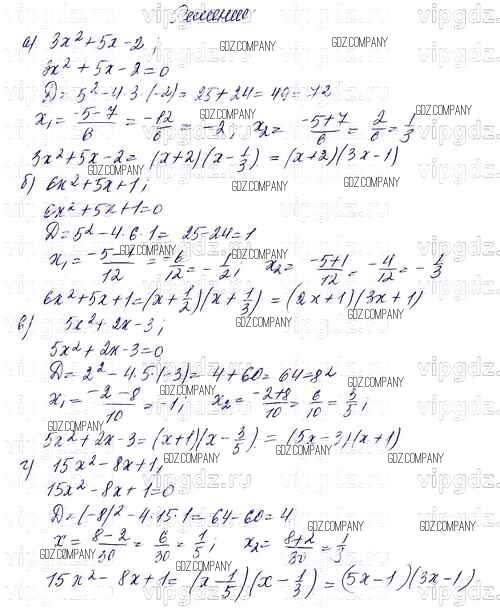 Решение
а) 3x² + 5x - 2;
3x² + 5x - 2 = 0
D = 5² - 4·3·(-2) = 25 + 24 = 49 = 7²
x₁ = (-5-7)/6 = -12/6 = -2, x₂ = (-5+7)/6 = 2/6 = 1/3
3x² + 5x - 2 = (x+2)(x - 1/3) = (x+2)(3x-1)
б) 6x² + 5x + 1;
6x² + 5x + 1 = 0
D = 5² - 4·6·1 = 25 - 24 = 1
x₁ = (-5-1)/12 = -6/12 = -1/2; x₂ = (-5+1)/12 = -4/12 = -1/3
6x² + 5x + 1 = (x + 1/2)(x + 1/3) = (2x+1)(3x+1)
в) 5x² + 2x - 3;
5x² + 2x - 3 = 0
D = 2² - 4·5·(-3) = 4 + 60 = 64 = 8²
x₁ = (-2-8)/10 = -1; x₂ = (-2+8)/10 = 6/10 = 3/5;
5x² + 2x - 3 = (x+1)(x - 3/5) = (5x-3)(x+1)
г) 15x² - 8x + 1;
15x² - 8x + 1 = 0
D = (-8)² - 4·15·1 = 64 - 60 = 4
x = (8-2)/30 = 6/30 = 1/5; x₂ = (8+2)/30 = 1/3
15x² - 8x + 1 = (x - 1/5)(x - 1/3) = (5x-1)(3x-1)